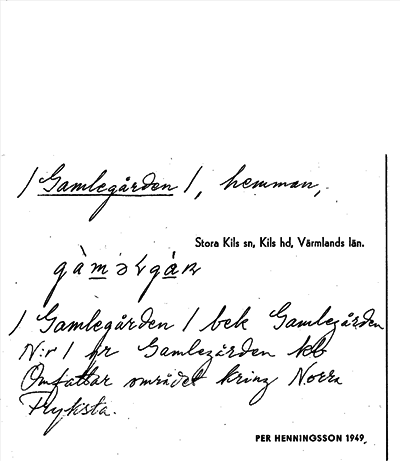 / Gamlegården /, hemman,
Stora Kils sn, Kils hd, Värmlands län.
/ Gamlegården / bek Gamlegården
N:r 1 fr Gamlegården kb
Omfattar området kring Norra
Fryksta.
PER HENNINGSSON 1949.